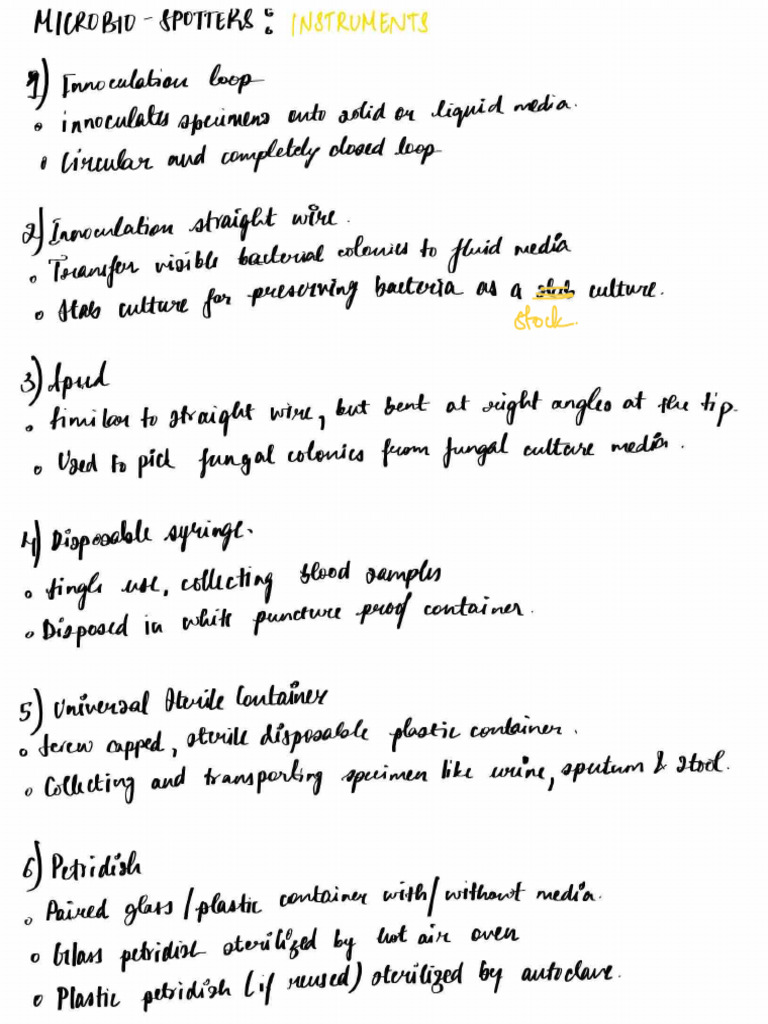 MICROBIO - SPOTTERS : INSTRUMENTS
1) Innoculation loop
• innoculates specimens onto solid or liquid media.
• Circular and completely closed loop
2) Innoculation straight wire.
• Transfer visible bacterial colonies to fluid media
• Stab culture for preserving bacteria as a stab culture.
stock.
3) Spud
• Similar to straight wire, but bent at right angles at the tip.
• Used to pick fungal colonies from fungal culture media.
4) Disposable syringe.
• Single use, collecting blood samples
• Disposed in white puncture proof container.
5) Universal Sterile Container
• Screw capped, sterile disposable plastic container.
• Collecting and transporting specimen like urine, sputum & stool.
6) Petridish
• Paired glass/plastic container with/without media.
• Glass petridish sterilized by hot air oven
• Plastic petridish (if reused) sterilized by autoclave.